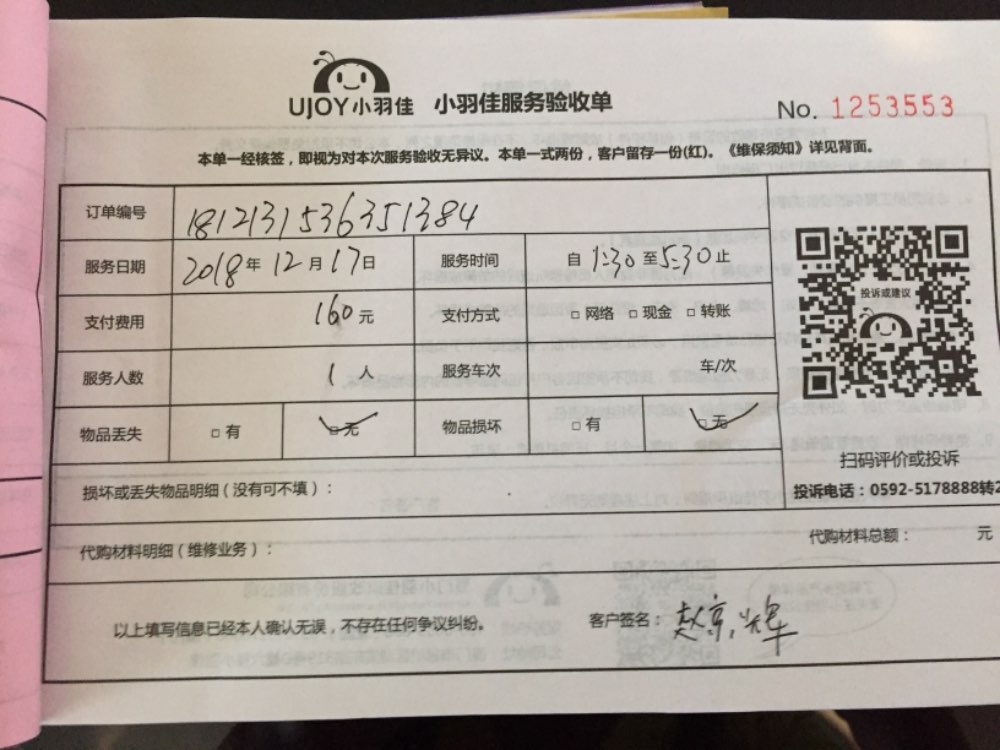 UJOY小羽佳 小羽佳服务验收单 No. 1253553
本单一经核签，即视为对本次服务验收无异议。本单一式两份，客户留存一份(红)。《维保须知》详见背面。
订单编号 1812131536351384
服务日期 2018年12月17日 服务时间 自1:30至5:30止
投诉或建议
支付费用 160元 支付方式 □网络 □现金 □转账
服务人数 1人 服务车次 车/次
物品丢失 □有 □无 物品损坏 □有 □无
扫码评价或投诉
损坏或丢失物品明细（没有可不填）： 投诉电话：0592-5178888转2
代购材料明细（维修业务）： 代购材料总额： 元
以上填写信息已经本人确认无误，不存在任何争议纠纷。 客户签名：赵京辉